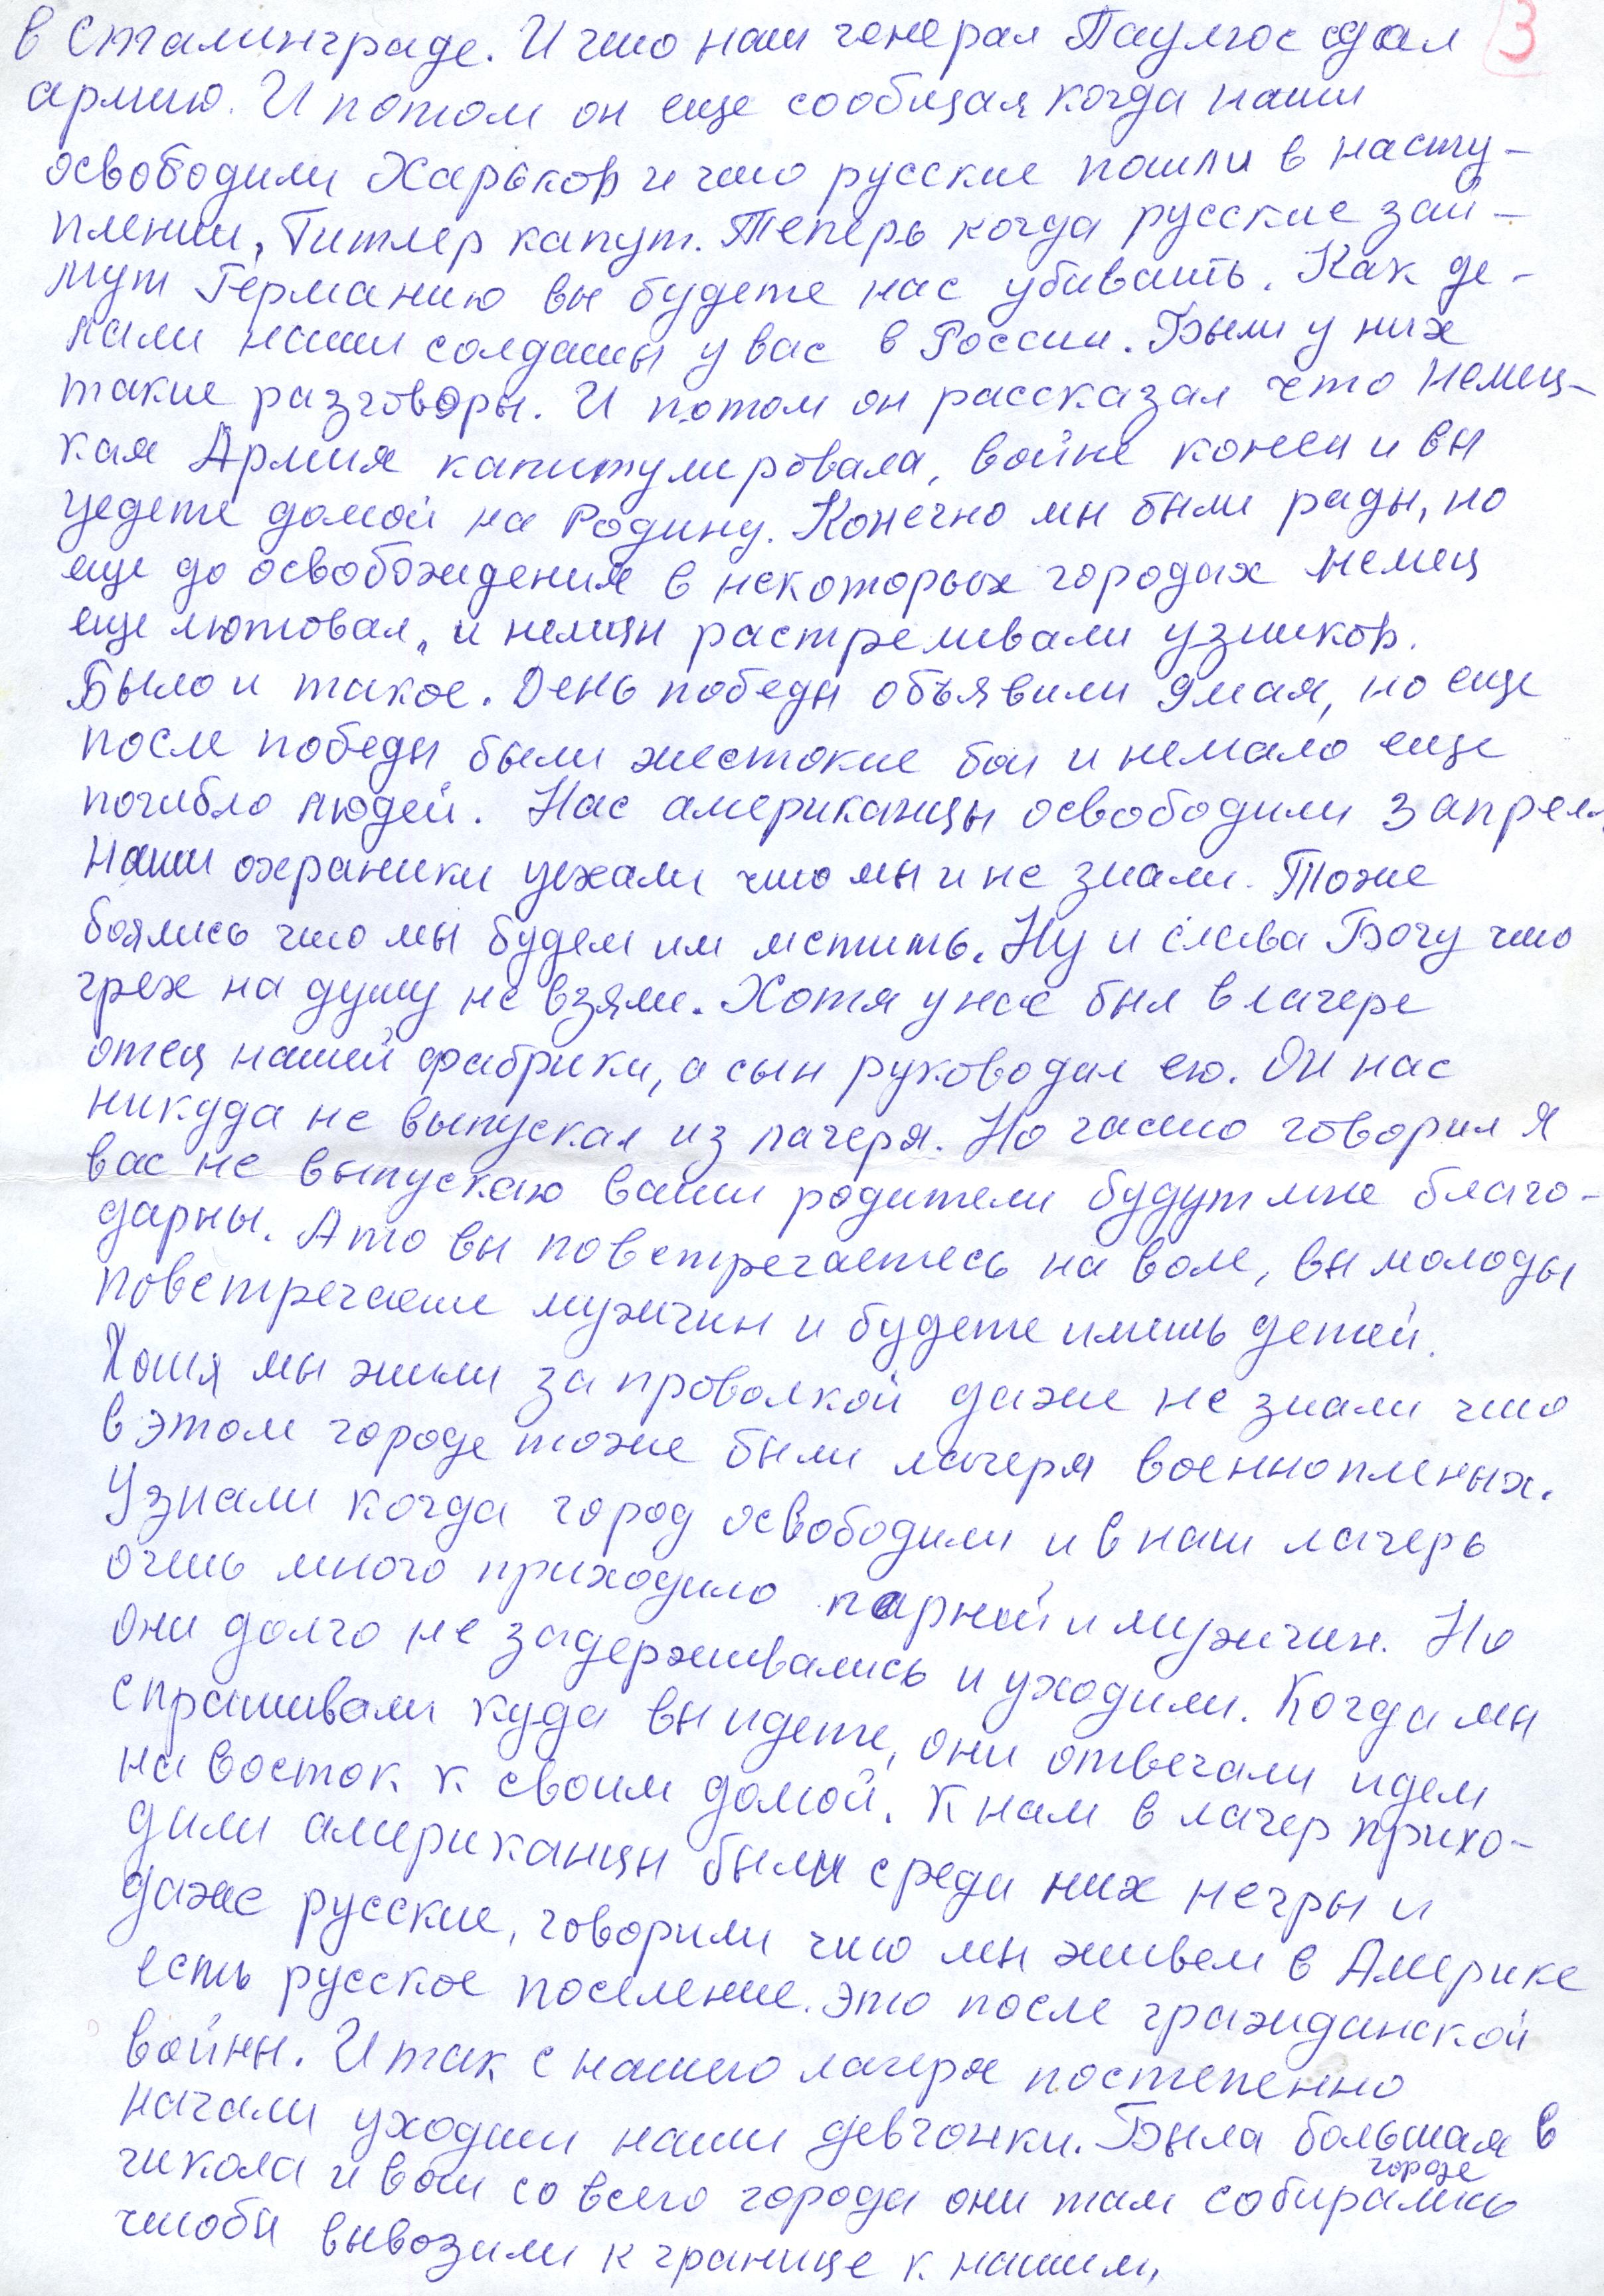 3
в Сталинграде. И что наш генерал Паулюс сдал
армию. И потом он еще сообщал когда наши
освободили Харьков и что русские пошли в насту-
плении, Гитлер капут. Теперь когда русские зай-
мут Германию вы будете нас убивать. Как де-
лали наши солдаты у вас в России. Были у них
такие разговоры. И потом он рассказал что немец-
кая Армия капитулировала, войне конец и вы
уедете домой на Родину. Конечно мы были рады, но
еще до освобождения в некоторых городах немец
еще лютовал, и немцы растреливали узников.
Было и такое. День победы объявили 9 мая, но еще
после победы были жестокие бои и немало еще
погибло людей. Нас американцы освободили 3 апреля
Наши охраники уехали что мы и не знали. Тоже
боялись что мы будем им мстить. Ну и слава Богу что
грех на душу не взяли. Хотя у нас был в лагере
отец нашей фабрики, а сын руководил ею. Он нас
никуда не выпускал из лагеря. Но часто говорил я
вас не выпускаю ваши родители будут мне благо-
дарны. А то вы повстречаетесь на воле, вы молоды
повстречаете мужчин и будете иметь детей.
Хотя мы жили за проволкой даже не знали что
в этом городе тоже были лагеря военнопленых.
Узнали когда город освободили и в наш лагерь
очень много приходило парней и мужчин. Но
они долго не задерживались и уходили. Когда мы
спрашивали куда вы идете, они отвечали идем
на восток к своим домой. К нам в лагер прихо-
дили американцы были среди них негры и
даже русские, говорили что мы живем в Америке
есть русское поселение. Это после гражданской
войны. И так с нашего лагеря постепенно
начали уходить наши девчонки. Была большая в
городе
школа и вот со всего города они там собирались
чтобы вывозили к границе к нашим,